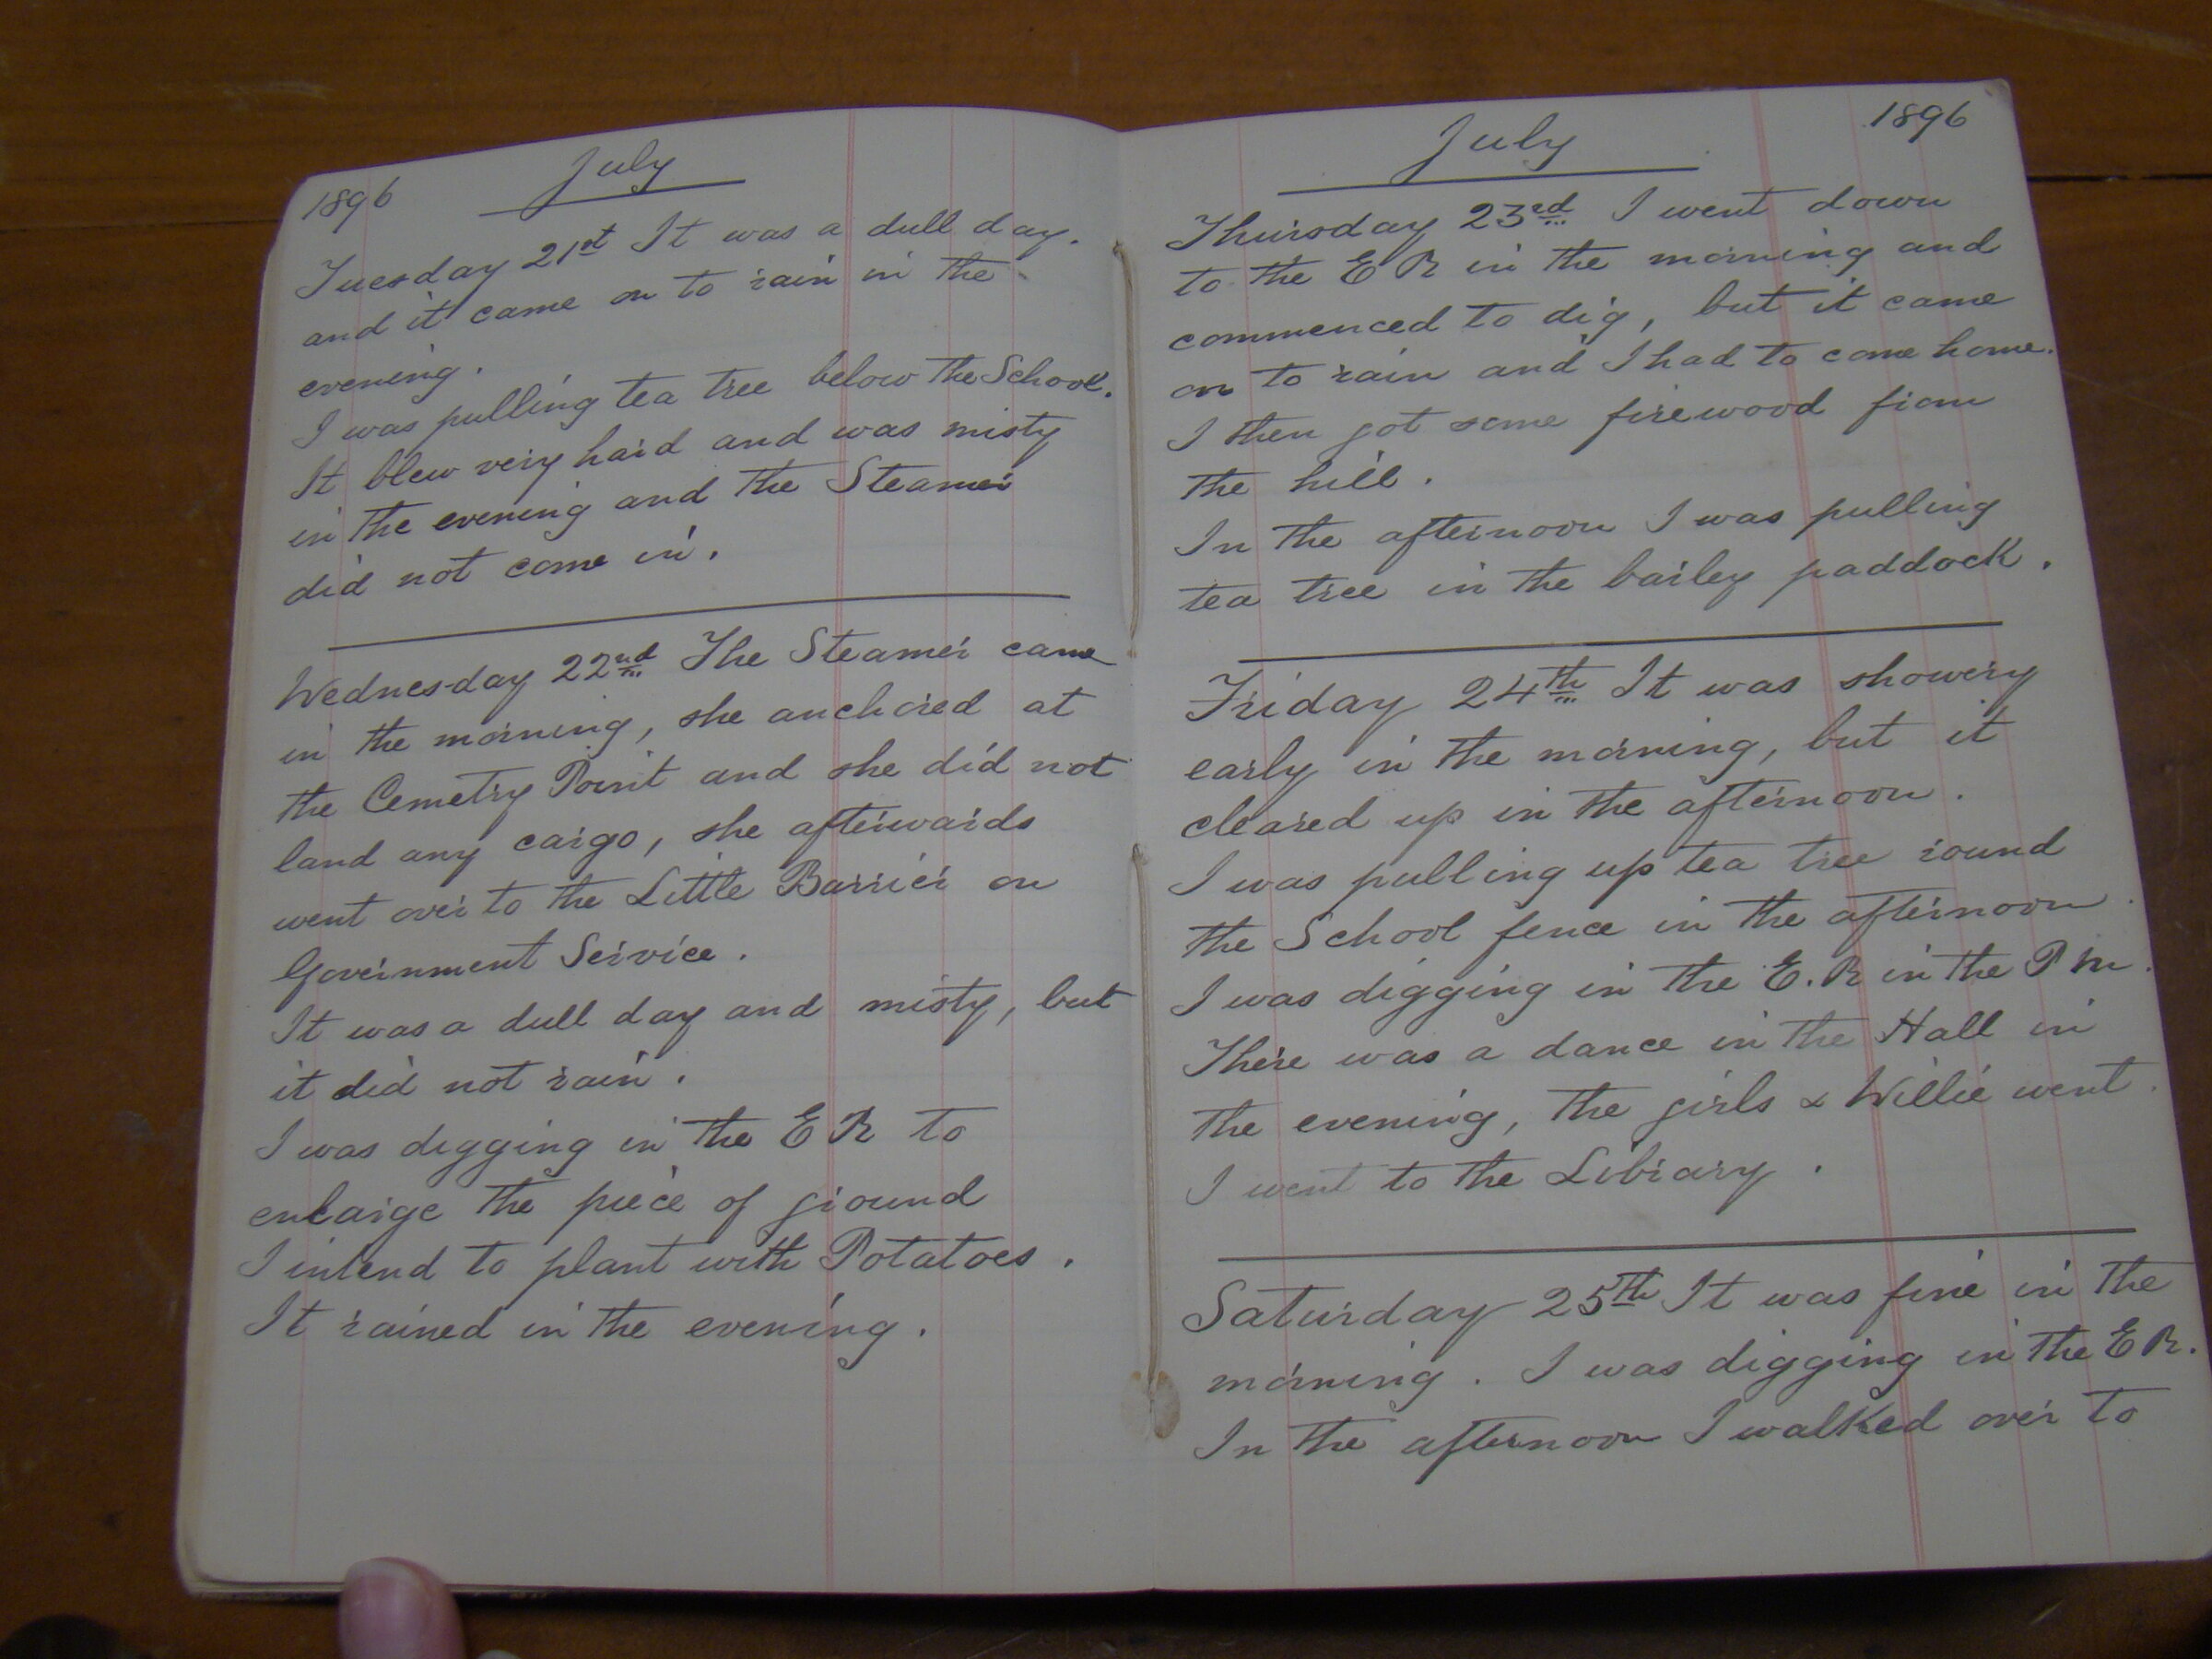 1896
July
Tuesday 21st It was a dull day.
and it came on to rain in the
evening.
I was pulling tea tree below the School.
It blew very hard and was misty
in the evening and the Steamer
did not come in.
Wednesday 22nd The Steamer came
in the morning, she anchored at
the Cemetry Point and she did not
land any cargo, she afterwards
went over to the Little Barrier on
Government Service.
It was a dull day and misty, but
it did not rain.
I was digging in the E R to
enlarge the piece of ground
I intend to plant with Potatoes.
It rained in the evening.
July
1896
Thursday 23rd I went down
to the E R in the morning and
commenced to dig, but it came
on to rain and I had to come home.
I then got some firewood from
the hill.
In the afternoon I was pulling
tea tree in the bailey paddock.
Friday 24th It was showery
early in the morning, but it
cleared up in the afternoon.
I was pulling up tea tree round
the School fence in the afternoon.
I was digging in the E.R in the P M.
There was a dance in the Hall in
the evening, the girls & Willie went.
I went to the Library.
Saturday 25th It was fine in the
morning. I was digging in the E R.
In the afternoon I walked over to